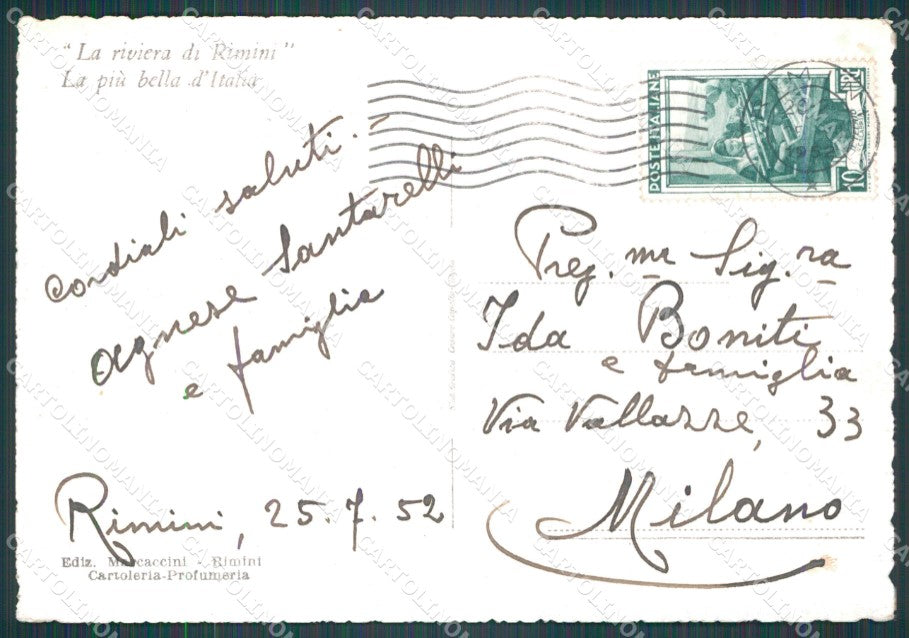 "La riviera di Rimini"
La più bella d'Italia
cordiali saluti.-
Agnese Santarelli
e famiglia
Rimini, 25.7.52
Ediz. Marcaccini - Rimini
Cartoleria-Profumeria
POSTE ITALIANE
LIRE
10
Preg.mr Sig.ra
Ida Boniti
e famiglia
Via Vallazze, 33
Milano
CARTOLINOMANIA